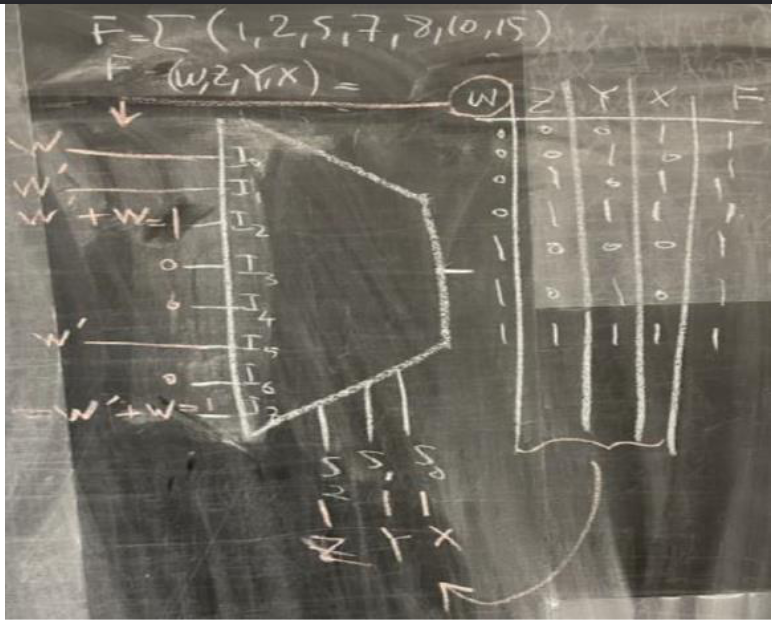 F = Σ (1, 2, 5, 7, 8, 10, 15)
F (W, Z, Y, X) =
W Z Y X F
0 0 0 1 1
0 0 1 0 1
0 1 0 1 1
0 1 1 1 1
1 0 0 0 1
1 0 1 0 1
1 1 1 1 1
W I0
W' I
W' + W = 1 I2
0 I3
0 I4
W' I5
0 I6
W' + W = 1 I7
S2 S1 S0
Z Y X